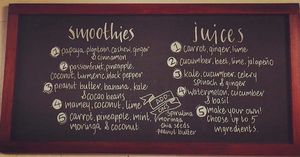 smoothies
1 papaya, plantain, cashew, ginger
& cinnamon
2 passionfruit, pineapple,
coconut, turmeric, black pepper
3 peanut butter, banana, kale
& cocoa beans
4 mamey, coconut, lime
5 carrot, pineapple, mint,
moringa & coconut
ADD
spirulina
moringa
chia seeds
peanut butter
juices
1 carrot, ginger, lime
2 cucumber, beet, lime, jalapeño
3 kale, cucumber, celery
spinach & ginger
4 watermelon, cucumber
& basil
5 make your own!
Choose up to 5
ingredients.